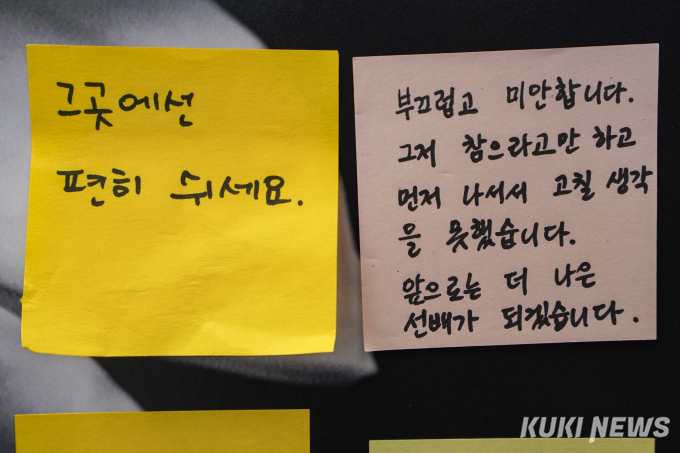 그곳에선
편히 쉬세요.
부끄럽고 미안합니다.
그저 참으라고만 하고
먼저 나서서 고칠 생각
을 못했습니다.
앞으로는 더 나은
선배가 되겠습니다.
KUKI NEWS